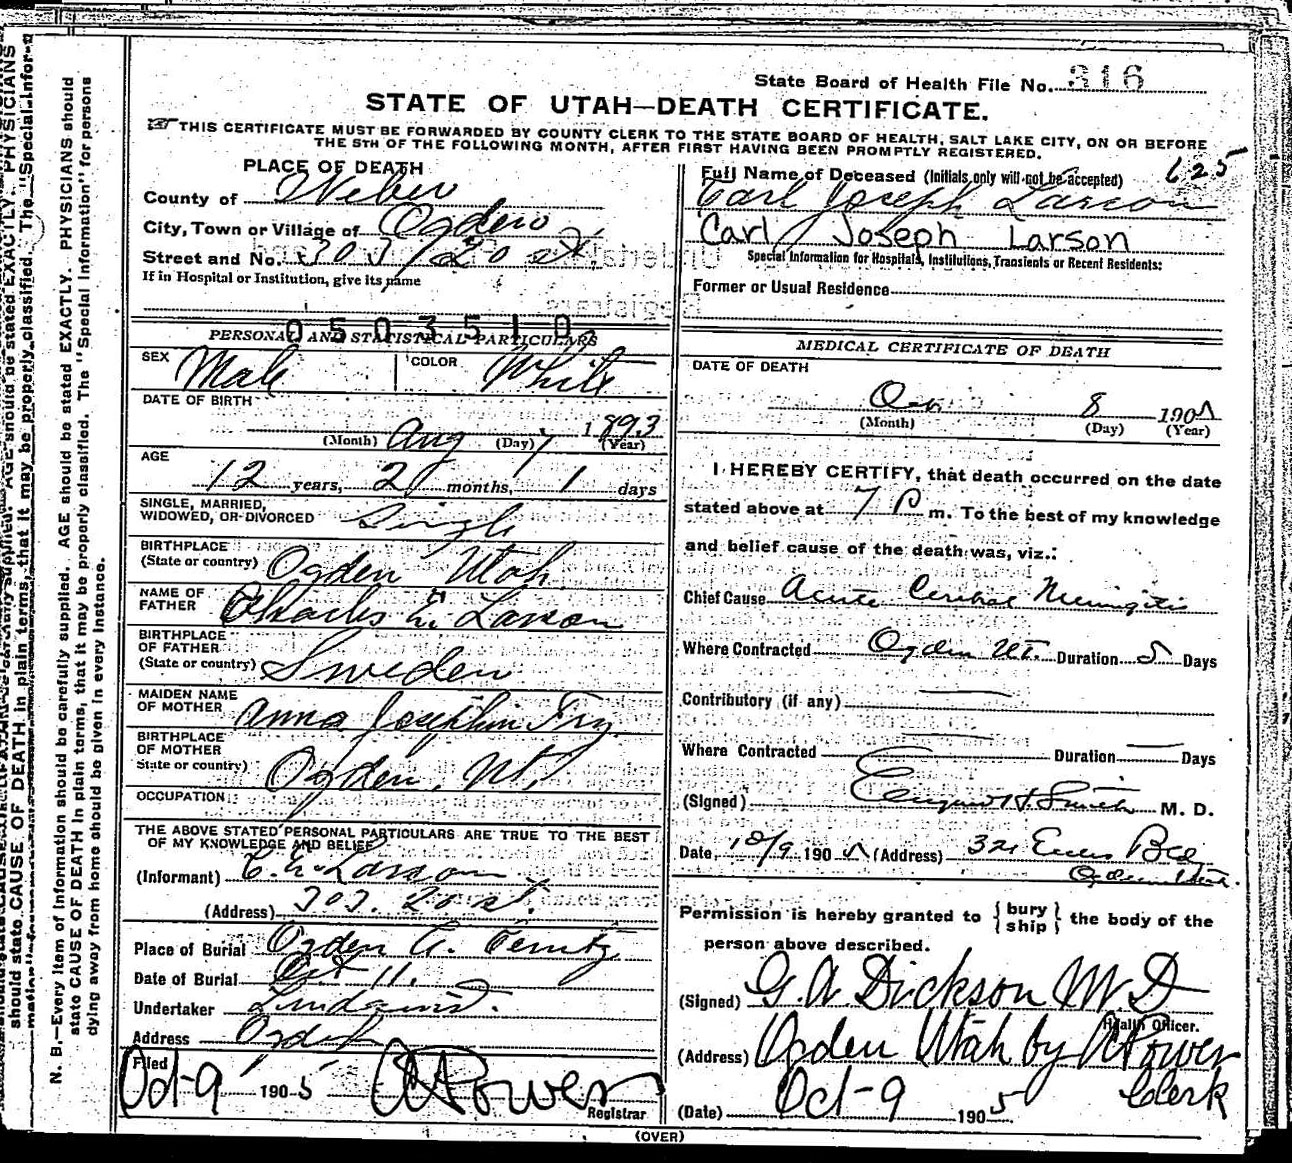 State Board of Health File No. 316
STATE OF UTAH—DEATH CERTIFICATE.
THIS CERTIFICATE MUST BE FORWARDED BY COUNTY CLERK TO THE STATE BOARD OF HEALTH, SALT LAKE CITY, ON OR BEFORE
THE 5TH OF THE FOLLOWING MONTH, AFTER FIRST HAVING BEEN PROMPTLY REGISTERED.
625
PLACE OF DEATH
County of Weber
City, Town or Village of Ogden
Street and No. 303 / 20 st
If in Hospital or Institution, give its name
0503510
PERSONAL AND STATISTICAL PARTICULARS
SEX Male COLOR White
DATE OF BIRTH
Aug 7 1893
(Month) (Day) (Year)
AGE
12 years, 2 months, 1 days
SINGLE, MARRIED,
WIDOWED, OR DIVORCED Single
BIRTHPLACE
(State or country) Ogden Utah
NAME OF
FATHER Charles E. Larson
BIRTHPLACE
OF FATHER
(State or country) Sweden
MAIDEN NAME
OF MOTHER Anna Josephin Fry
BIRTHPLACE
OF MOTHER
State or country) Ogden, Ut.
OCCUPATION
THE ABOVE STATED PERSONAL PARTICULARS ARE TRUE TO THE BEST
OF MY KNOWLEDGE AND BELIEF
(Informant) C. E. Larson
(Address) 303. 20 st.
Place of Burial Ogden
Date of Burial Oct 11.
Undertaker
Address Ogden
Filed
Oct-9 1905 Power
Registrar
Full Name of Deceased (Initials only will not be accepted)
Carl Joseph Larson
Carl Joseph Larson
Special Information for Hospitals, Institutions, Transients or Recent Residents:
Former or Usual Residence
MEDICAL CERTIFICATE OF DEATH
DATE OF DEATH
8 1905
(Month) (Day) (Year)
I HEREBY CERTIFY, that death occurred on the date
stated above at 7 P m. To the best of my knowledge
and belief cause of the death was, viz.:
Chief Cause Acute Cerebral Meningitis
Where Contracted Ogden Ut. Duration 5 Days
Contributory (if any)
Where Contracted Duration Days
(Signed) Smith M. D.
Date, 10/9 1905 (Address) 321 Eccles Bldg
Ogden Utah.
Permission is hereby granted to {bury ship} the body of the
person above described.
(Signed) G. A Dickson M.D
Health Officer.
(Address) Ogden Utah by Power
Clerk
(Date) Oct-9 1905
(OVER)
N. B.—Every item of information should be carefully supplied. AGE should be stated EXACTLY. PHYSICIANS should
state CAUSE OF DEATH in plain terms, that it may be properly classified. The "Special Information" for persons
dying away from home should be given in every instance.